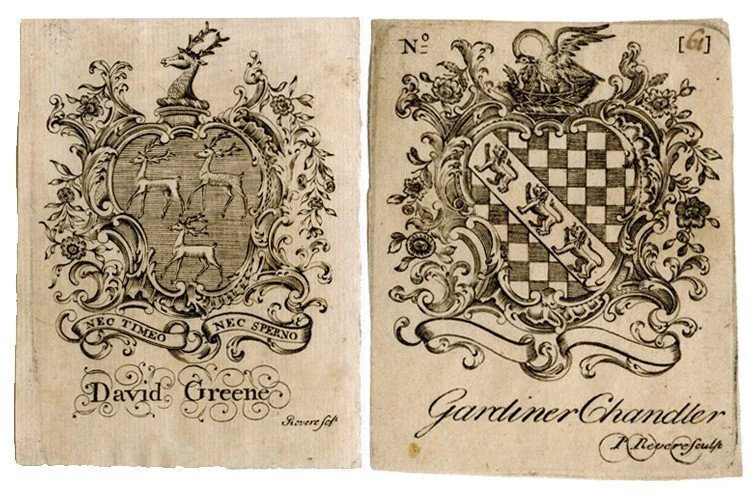 NEC TIMEO NEC SPERNO
David Greene
Revere sc.
Nº [61]
Gardiner Chandler
P Revere sculp